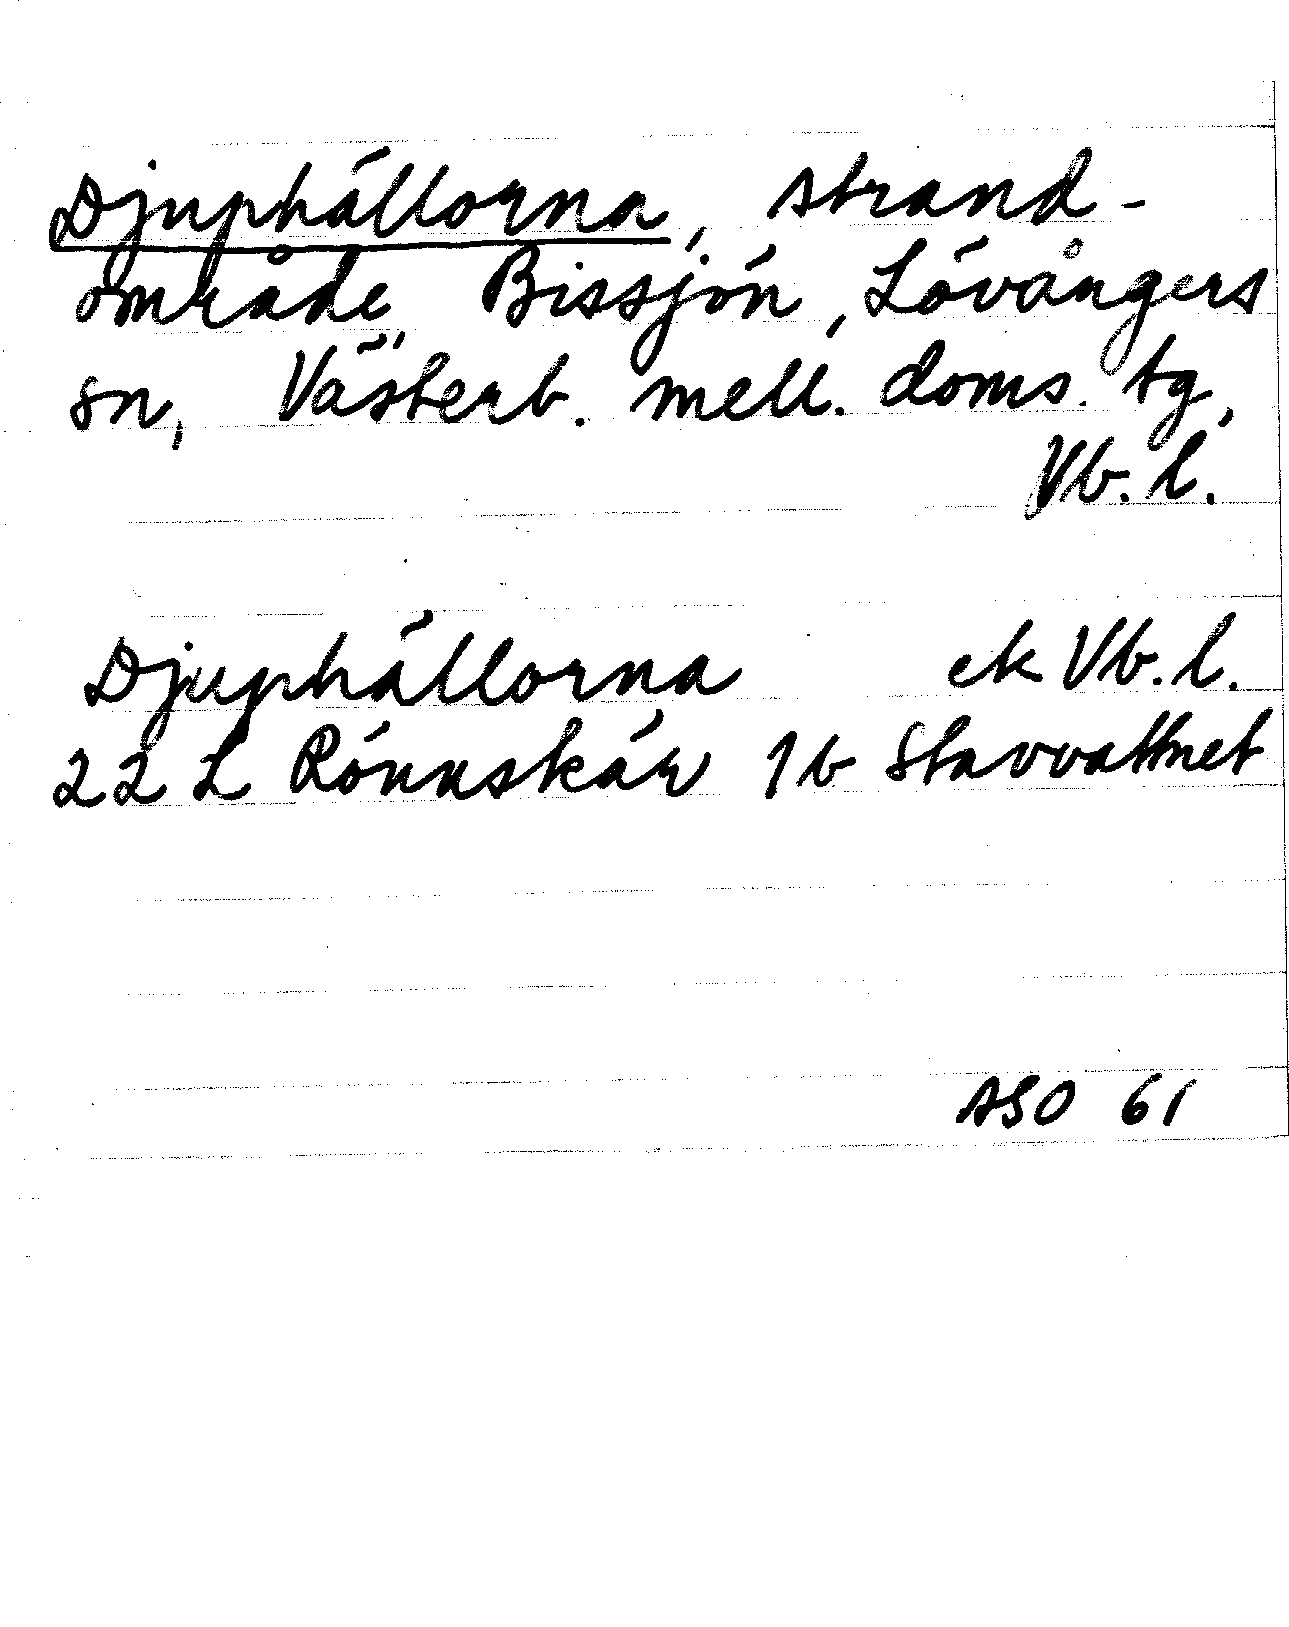 Djuphällorna, strand-
område, Bissjön, Lövångers
sn, Västerb. mell. doms. tg,
Vb. l.
Djuphällorna ek Vb. l.
22 L Rönnskär 1b Stavvattnet
ASO 61